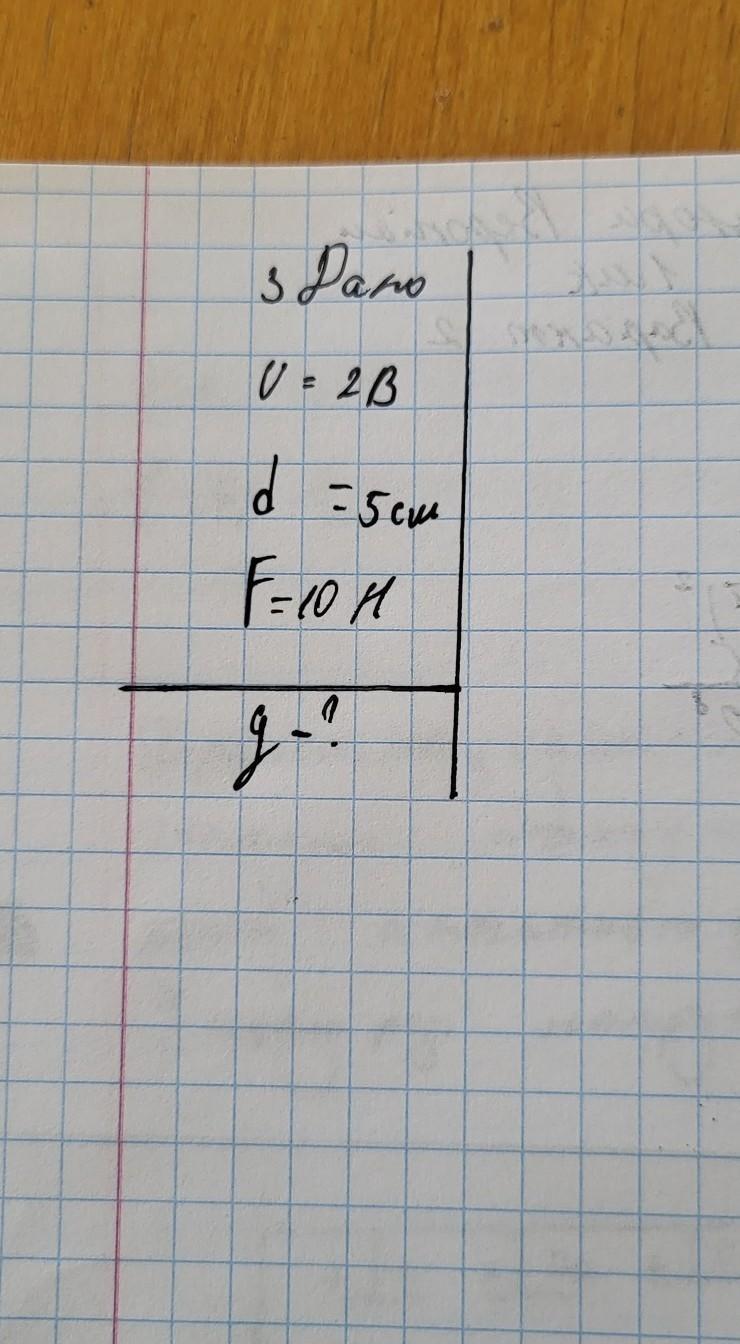 3 Дано
U = 2В
d = 5см
F = 10 Н
g - ?